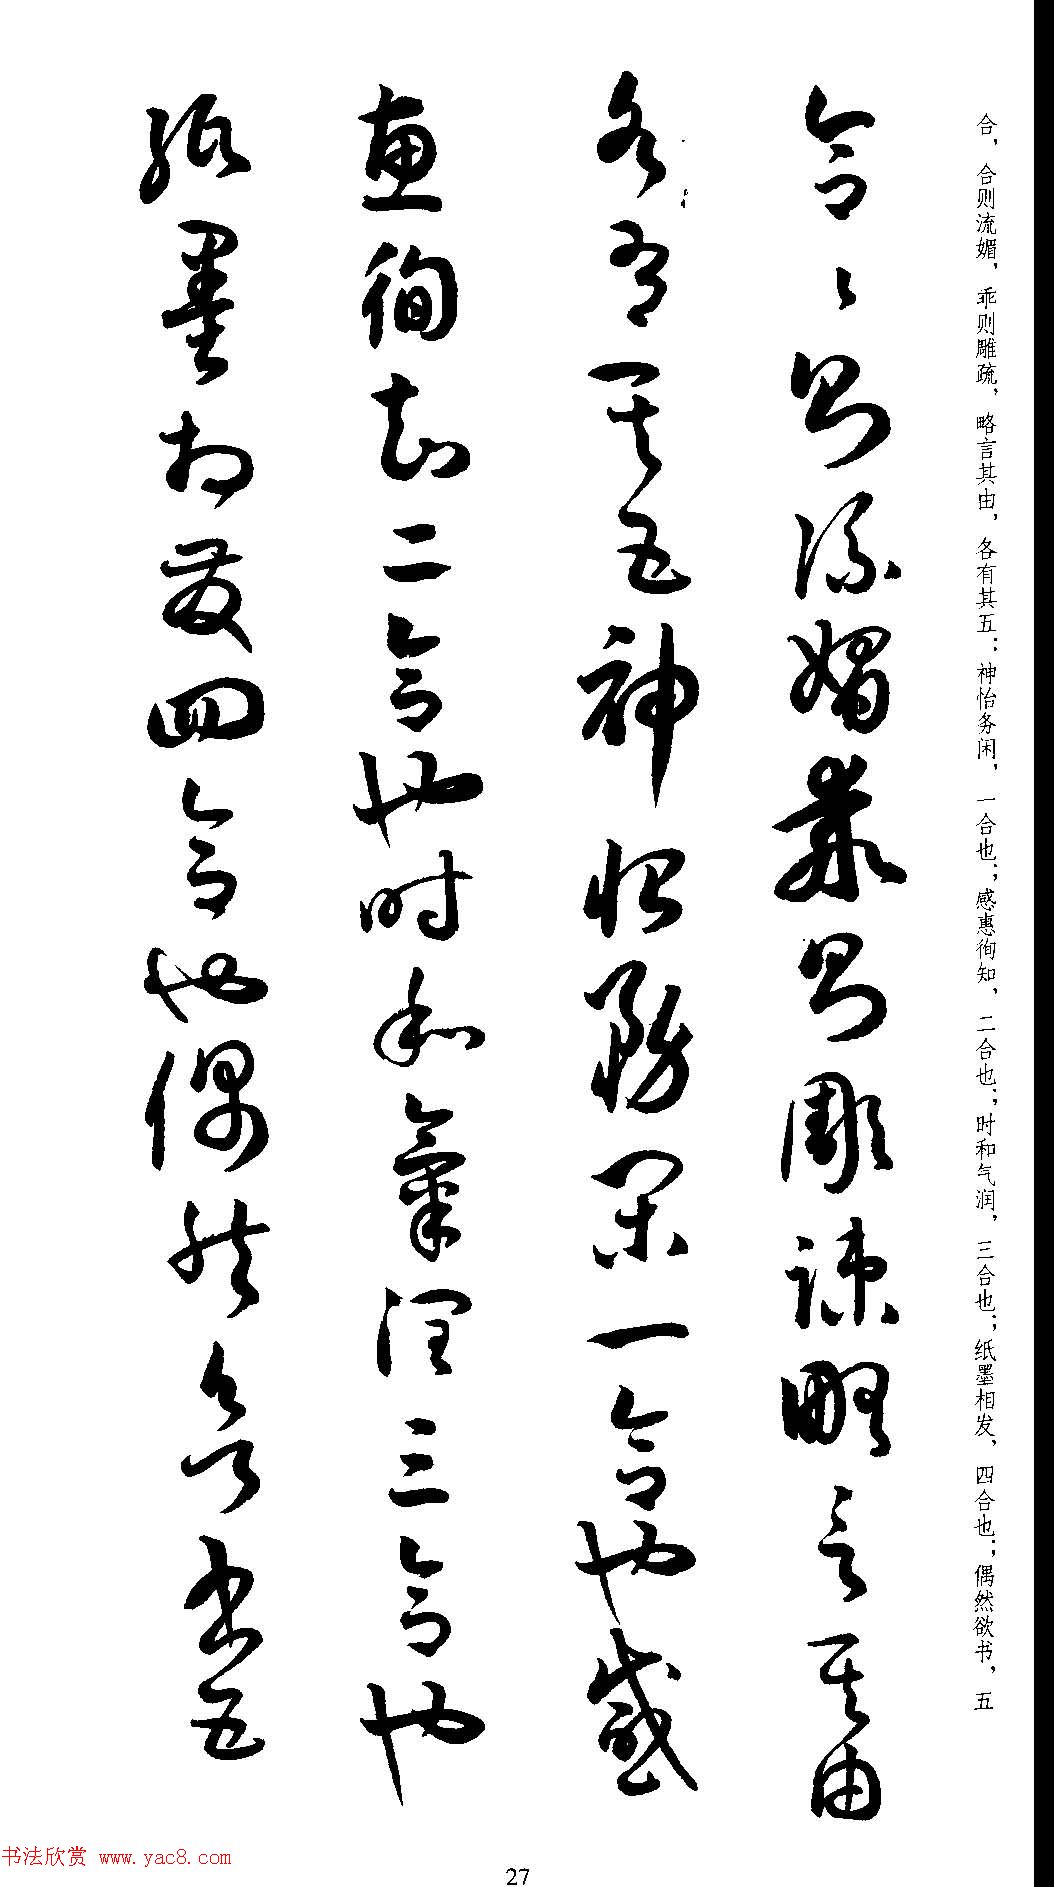 合，合则流媚，乖则雕疏，略言其由，各有其五：神怡务闲，一合也；感惠徇知，二合也；时和气润，三合也；纸墨相发，四合也；偶然欲书，五
合〻则流媚乖则彫疎略言其由
各有其五神怡務閑一合也感
惠徇知二合也时和氣潤三合也
紙墨相發四合也偶然欲書五
书法欣赏 www.yac8.com
27